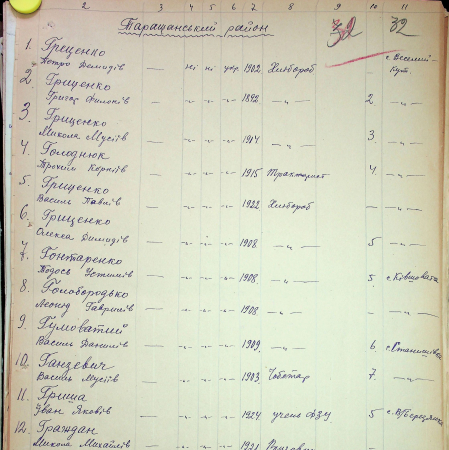 2 3 4 5 6 7 8 9 10 11
Таращанський район 32 32
1. Гриценко
Петро Демидів — ні ні укр. 1902. Хлібороб с. Веселий-Кут.
2. Гриценко
Григор — -"- -"- -"- 1892. —"— 2 —"—
3. Гриценко
Микола Мусіїв — -"- -"- -"- 1914. —"— 3 —"—
4. Голоднюк
Трохим Корніїв — -"- -"- -"- 1915 Тракторист 4 —"—
5. Гриценко
Василь Павлів — -"- -"- -"- 1922 Хлібороб — —"—
6. Гриценко
Олекса Демидів — -"- -"- -"- 1908. —"— 5 —"—
7. Гонтаренко
Тодось Устимів — -"- -"- -"- 1908. —"— 5 с. Ківшовата
8. Голобородько
Леонід Гаврилів — -"- -"- -"- 1908 —"— — —"—
9. Гумоватий
Василь Данилів — -"- -"- -"- 1909. —"— 6 с. Станишівка
10. Ганзевич
Василь Мусіїв — -"- -"- -"- 1903. Чоботар 7. —"—
11. Гриша
Іван Яковів — -"- -"- -"- 1924. учень ФЗУ 5
12. Граждан
Микола Михайлів — -"- -"- -"-